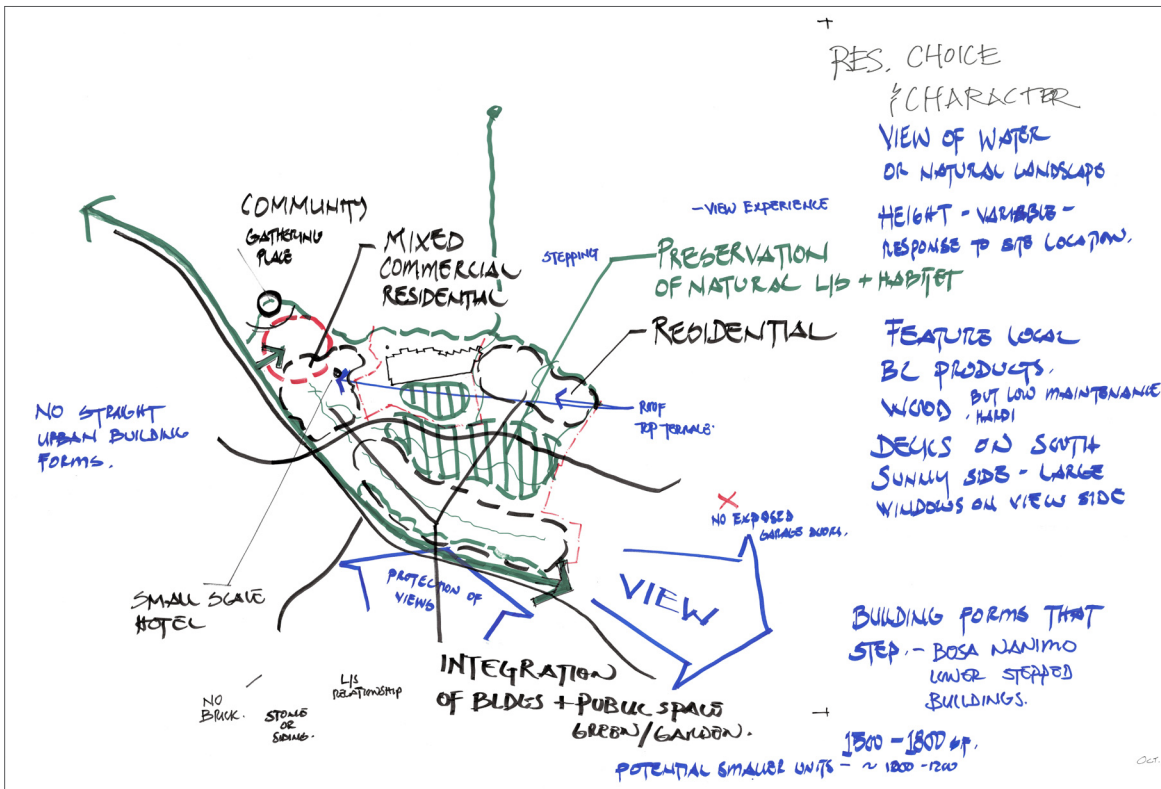 RES. CHOICE
& CHARACTER
VIEW OF WATER
OR NATURAL LANDSCAPE
HEIGHT - VARIABLE -
RESPONSE TO SITE LOCATION.
FEATURE LOCAL
BC PRODUCTS.
WOOD BUT LOW MAINTENANCE
· HARDI
DECKS ON SOUTH
SUNNY SIDE - LARGE
WINDOWS ON VIEW SIDE
BUILDING FORMS THAT
STEP. - BOSA NANIMO
LOWER STEPPED
BUILDINGS.
1500 - 1800 SF.
POTENTIAL SMALLER UNITS - ~ 1000 - 1200
OCT.
COMMUNITY
GATHERING
PLACE
MIXED
COMMERCIAL
RESIDENTIAL
- VIEW EXPERIENCE
STEPPING
PRESERVATION
OF NATURAL L/S + HABITET
RESIDENTIAL
ROOF
TOP TERRACE.
NO STRAIGHT
URBAN BUILDING
FORMS.
NO EXPOSED
GARAGE DOORS.
SMALL SCALE
HOTEL
PROTECTION OF
VIEWS
VIEW
INTEGRATION
OF BLDGS + PUBLIC SPACE
GREEN/GARDEN.
L/S
RELATIONSHIP
NO
BRICK.
STONE
OR
SIDING.